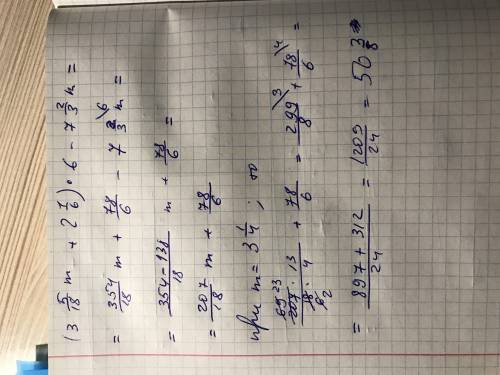 (3 5/18 m + 2 1/6) · 6 - 7 2/3 m =
= 354/18 m + 78/6 - 7 2/3 \6 m =
= 354-138/18 m + 78/6 =
= 207/18 m + 78/6
при m = 3 1/4 ; то
69 23 207 · 13 / 18 · 4 6 2 + 78/6 = 299/8 \3 + 78/6 \4 =
= 897 + 312/24 = 1209/24 = 50 3/8